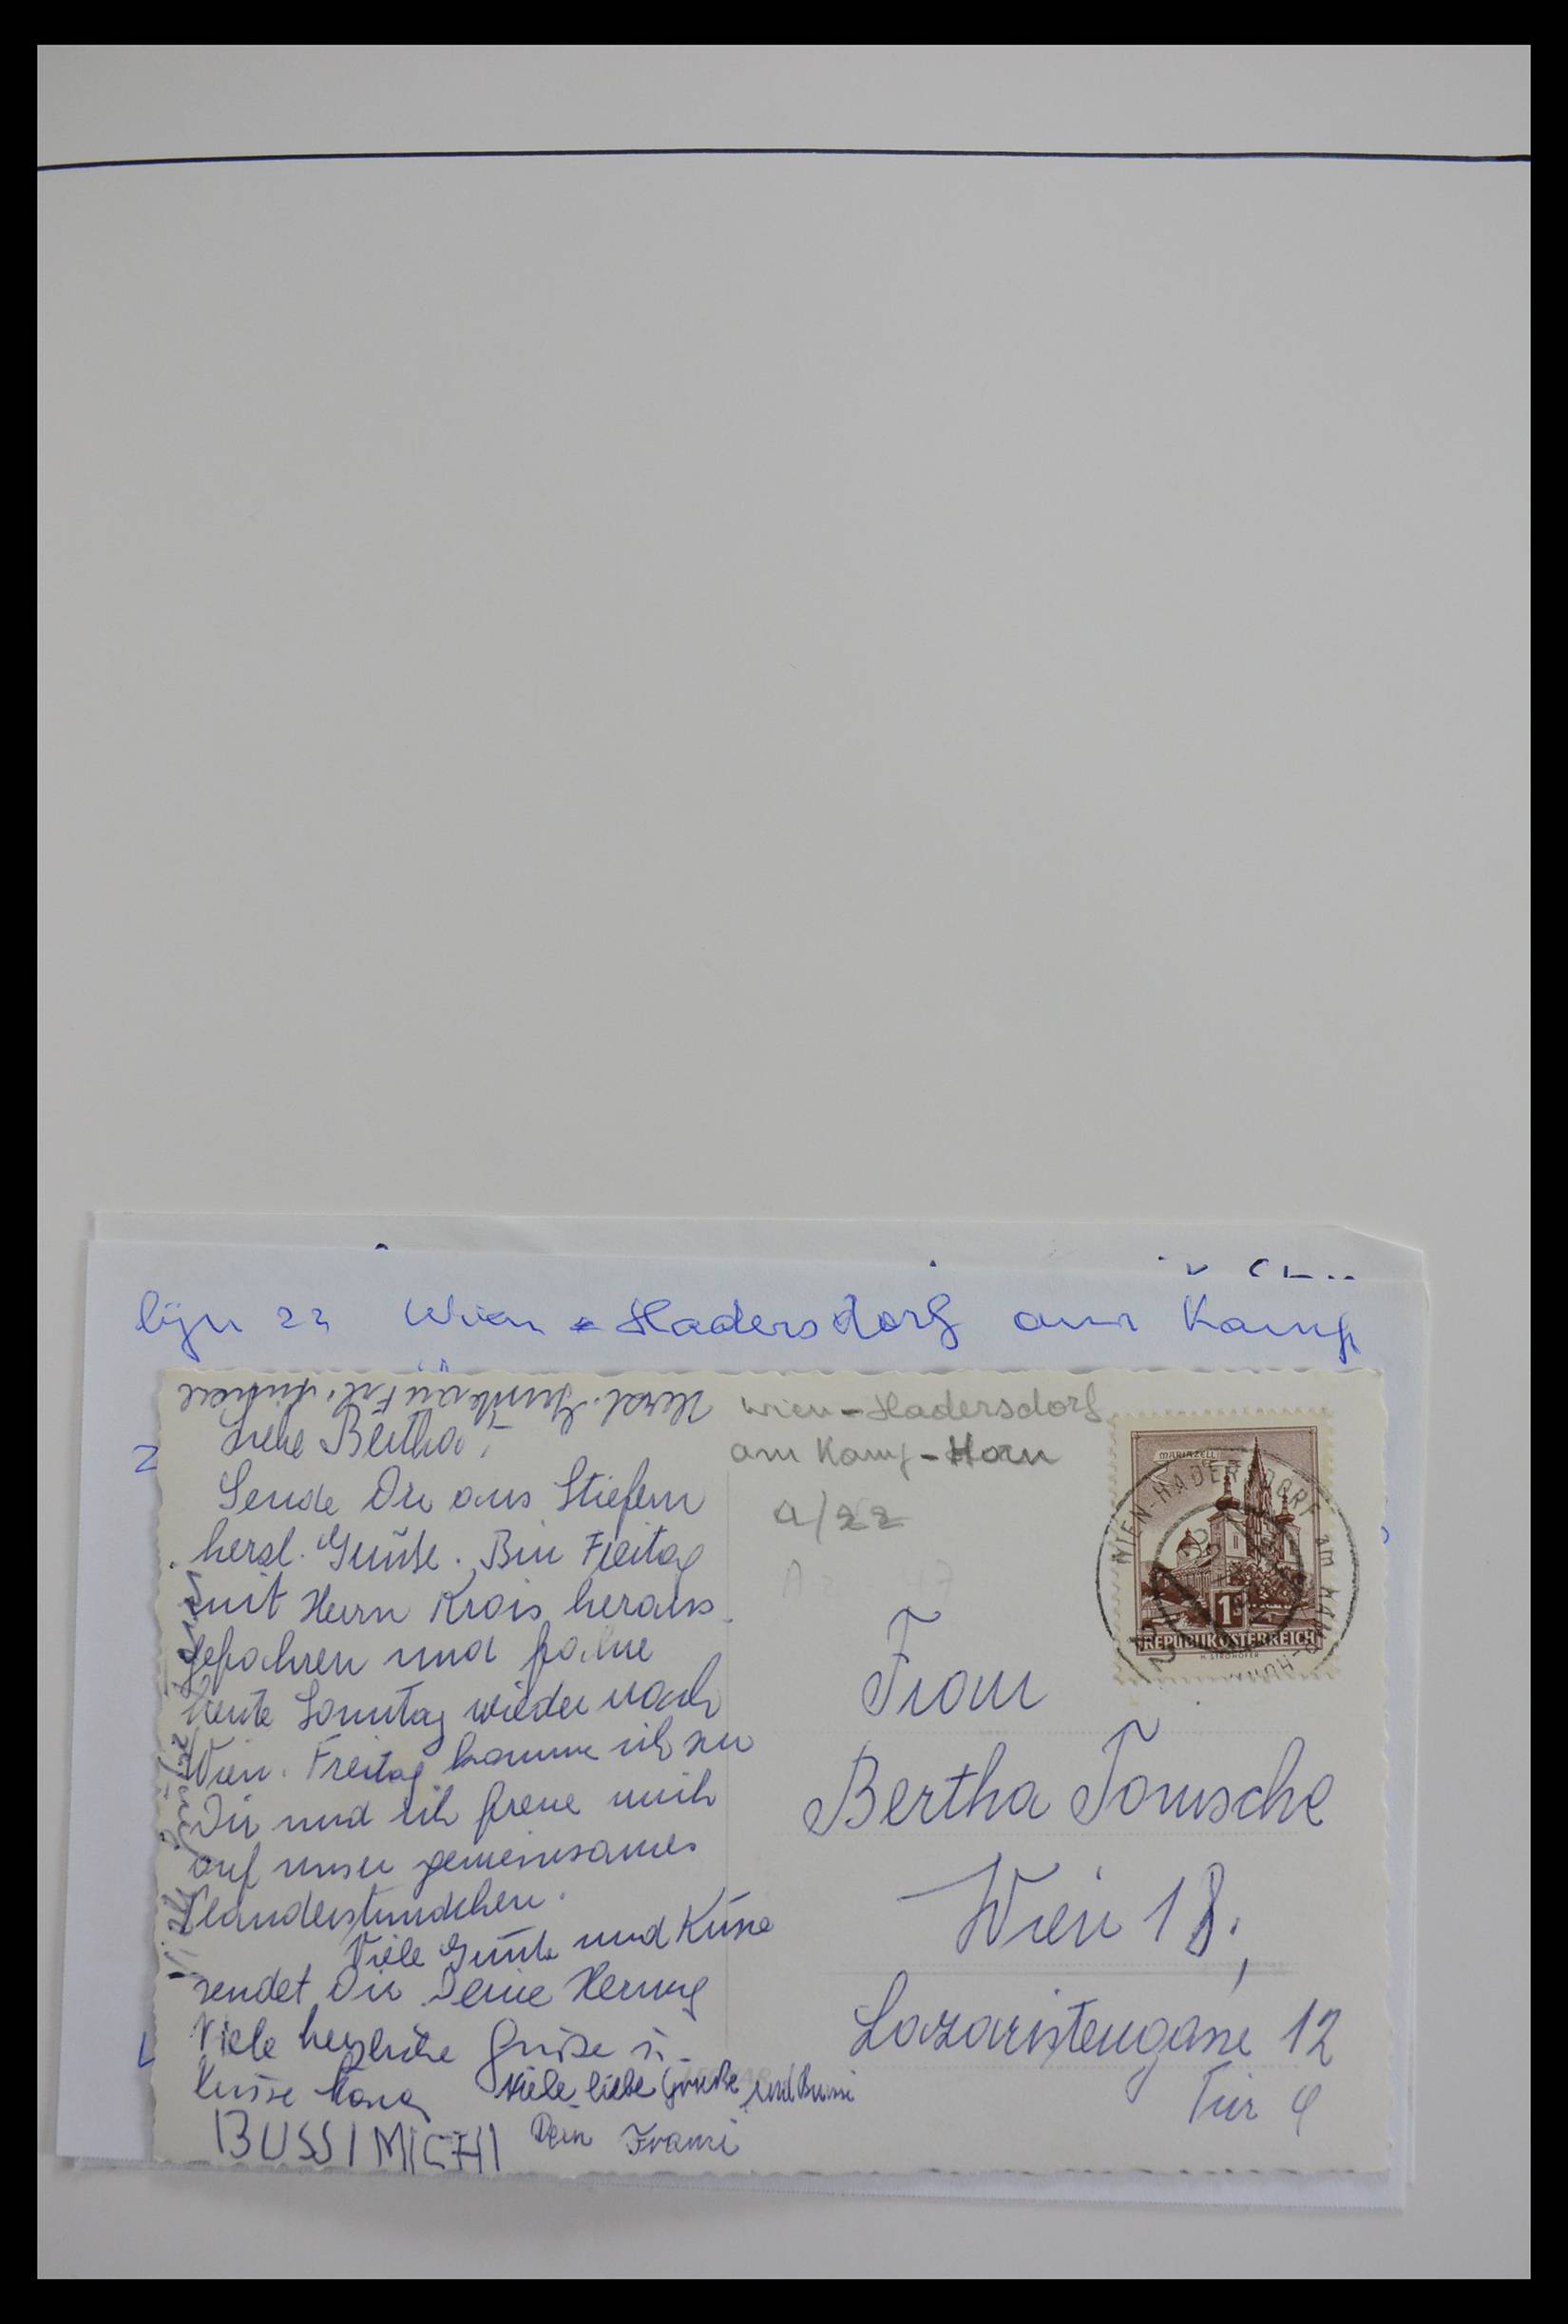 lijn 22 Wien - Hadersdorf am Kamp
Wien-Hadersdorf
am Kamp-Horn
a/22
Liebe Bertha!
Sende Dir aus Stiefern
herzl. Grüße. Bin Freitag
mit Herrn Krois heraus
gefahren und fahre
heute Sonntag wieder nach
Wien. Freitag komme ich zu
Dir und ich freue mich
auf unser gemeinsames
Plauderstündchen.
Viele Grüße und Küsse
sendet Dir Deine
Viele herzliche Grüße u.
Küsse
Viele liebe Grüße und Bussi
Dein Franzi
BUSSI MICHI
MARIAZELL
WIEN-HADERSDORF am KAMP-HORN
1S
REPUBLIK ÖSTERREICH
Frau
Bertha Tomsche
Wien 18,
Lazaristengasse 12
Tür 9